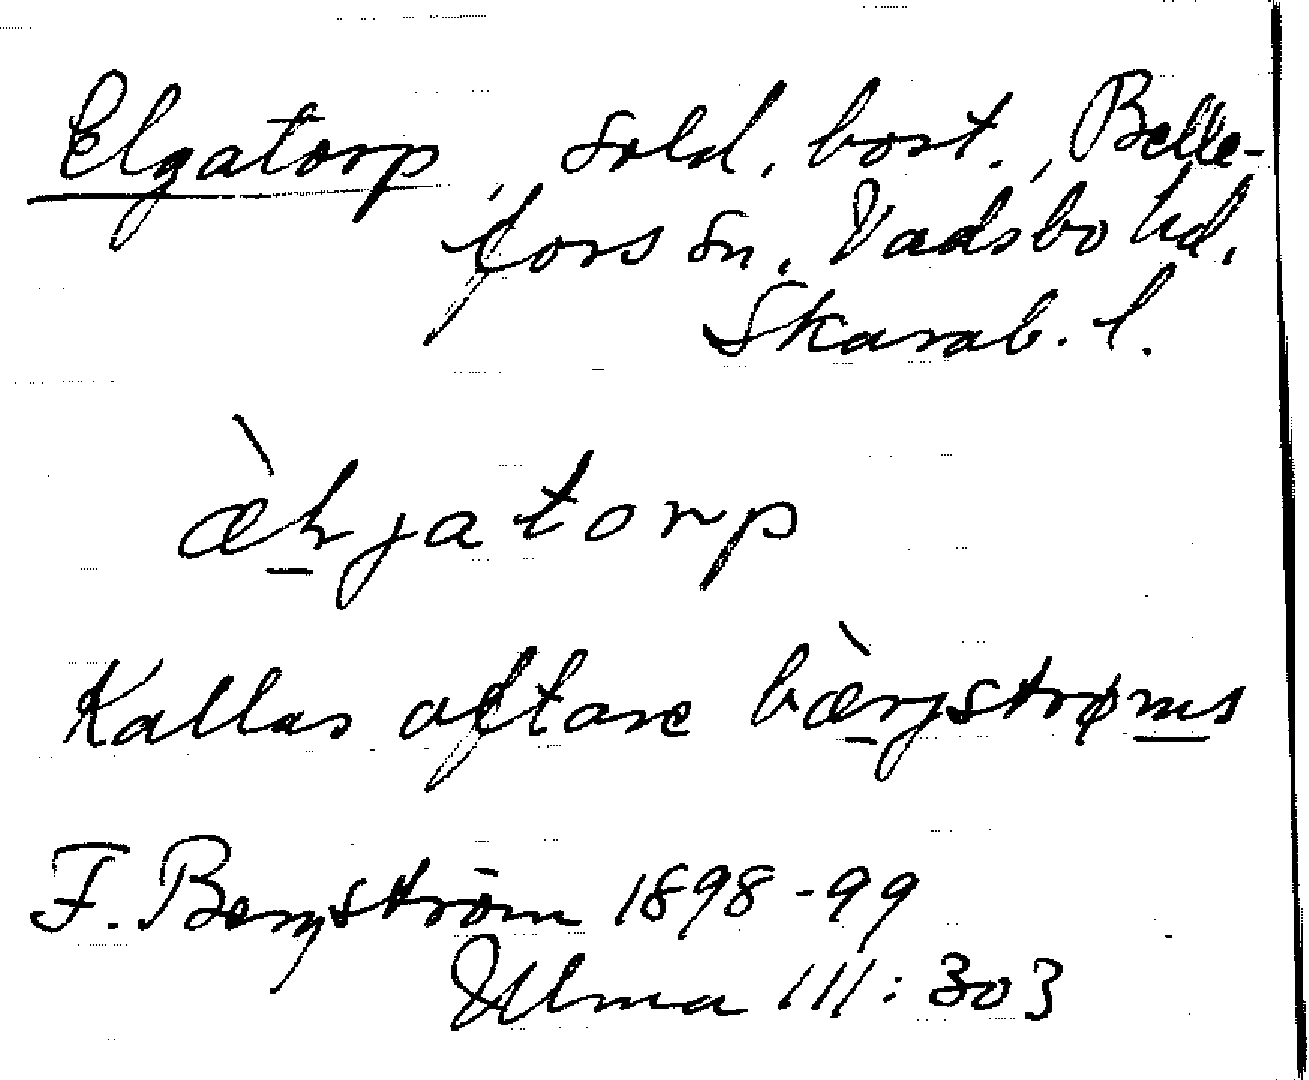 Elgatorp, sold. bost., Belle-
fors sn. Vadsbo hd.
Skarab. l.
æ̀ɫjatorp
Kallas oftare bæ̀rjstrøms
F. Bergström 1898-99
Ulma 111:303